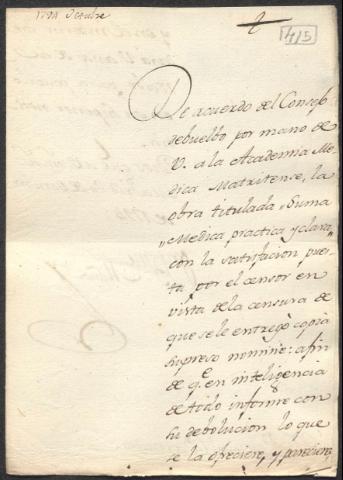 Octubre
2
1415
De acuerdo del Consejo
debuelbo por mano de
V. a la Academia Me
dica Matritense, la
obra titulada „Suma
„Medica practica y clara„
con la satisfacion pues
ta por el censor en
vista de la censura de
que se le entregó copia
supreso nomine: a fin
de q.e en inteligencia
de todo informe con
su debolucion lo que
se la ofreciere, y pareciere